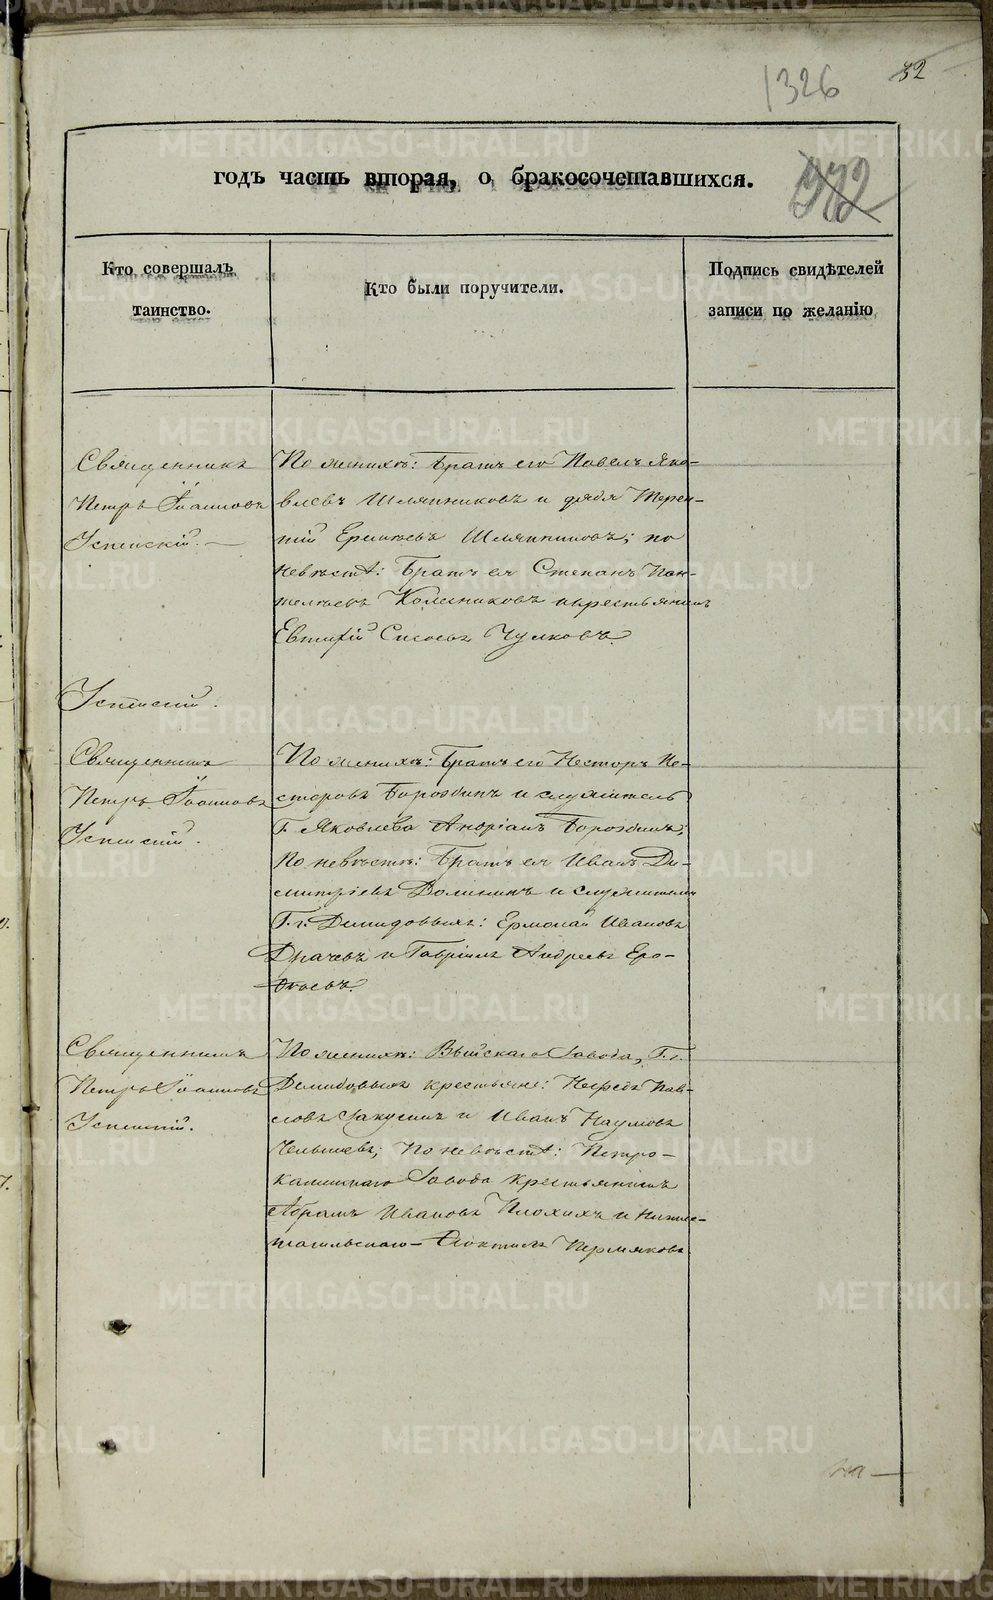 1326
32
972
годъ часть вторая, о бракосочетавшихся.
Кто совершалъ
таинство.
Кто были поручители.
Подпись свидѣтелей
записи по желанію
Священникъ
Петръ Іоанновъ
Успенскій.
По женихѣ: Братъ его Павелъ Яко-
влевъ Шляпниковъ и дядя Терен-
тій Ереміевъ Шляпниковъ; по
невѣстѣ: Братъ ея Степанъ Пан-
телѣевъ Колесниковъ и крестьянинъ
Евтифій Сысоевъ Чулковъ.
Успенскій.
Священникъ
Петръ Іоанновъ
Успенскій.
По женихѣ: Братъ его Несторъ Не-
сторовъ Бороздинъ и служитель
Г. Яковлева Андріанъ Бороздинъ;
По невѣстѣ: Братъ ея Иванъ Ди-
митріевъ Волынинъ и служители
Г.г. Демидовыхъ: Ермолай Ивановъ
Драчевъ и Гавріилъ Андреевъ Еро-
ѳѣевъ.
Священникъ
Петръ Іоанновъ
Успенскій.
По женихѣ: Выйскаго Завода, Г.г.
Демидовыхъ крестьяне: Нефедъ Пав-
ловъ и Иванъ Наумовъ
Челышевъ; По невѣстѣ: Петро-
каменнаго Завода крестьянинъ
Абрамъ Ивановъ Плохихъ и Нижне-
тагильскаго Ѳеоктистъ Пермяковъ
METRIKI.GASO-URAL.RU